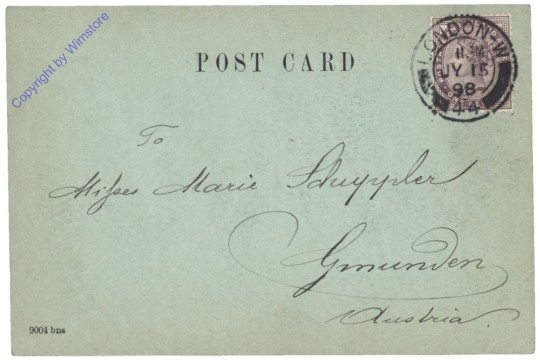 Copyright by Wimstore
POST CARD
LONDON-W
JY 15
98
44
To
Misses Marie Schuppler
Gmunden
Austria.
9004 bns